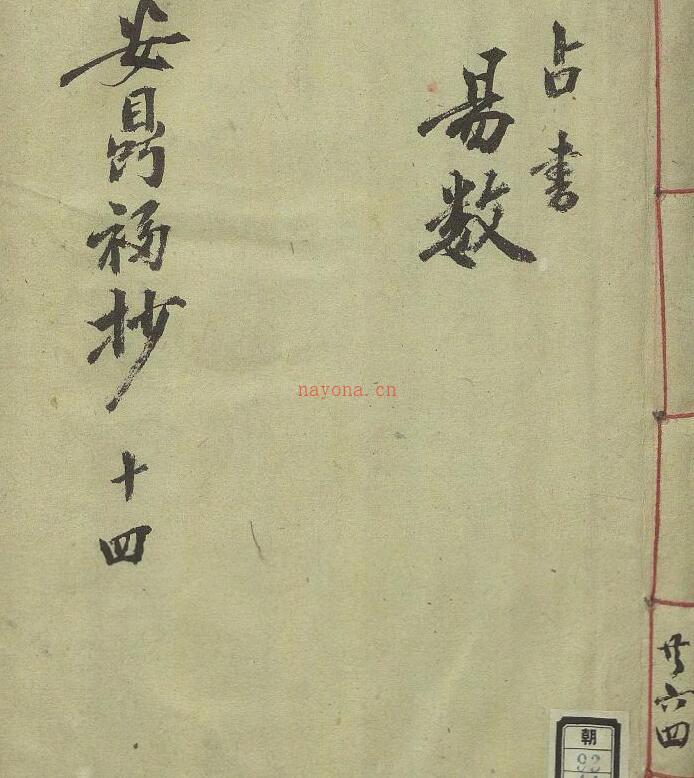 占書
易数
安鼎福抄 十四
共六四
nayona.cn
朝
92